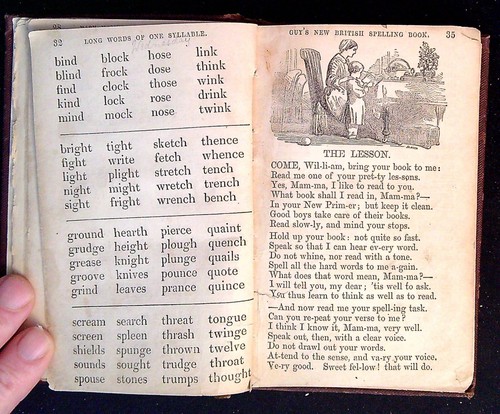 32 LONG WORDS OF ONE SYLLABLE.
bind block hose link
blind frock dose think
find clock those wink
kind lock rose drink
mind mock nose twink
bright tight sketch thence
fight write fetch whence
light plight stretch tench
night might wretch trench
sight fright wrench bench
ground hearth pierce quaint
grudge height plough quench
grease knight plunge quails
groove knives pounce quote
grind leaves prance quince
scream search threat tongue
screen spleen thrash twinge
shields spunge thrown twelve
sounds sought trudge throat
spouse stones trumps thought
GUY'S NEW BRITISH SPELLING BOOK. 35
THE LESSON.
COME, Wil-li-am, bring your book to me:
Read me one of your pret-ty les-sons.
Yes, Mam-ma, I like to read to you.
What book shall I read in, Mam-ma?—
In your New Prim-er; but keep it clean.
Good boys take care of their books.
Read slow-ly, and mind your stops.
Hold up your book: not quite so fast.
Speak so that I can hear ev-ery word.
Do not whine, nor read with a tone.
Spell all the hard words to me a-gain.
What does that word mean, Mam-ma?—
I will tell you, my dear; 'tis well to ask.
You thus learn to think as well as to read.
—And now read me your spell-ing task.
Can you re-peat your verse to me?
I think I know it, Mam-ma, very well.
Speak out, then, with a clear voice.
Do not drawl out your words.
At-tend to the sense, and va-ry your voice.
Ve-ry good. Sweet fel-low! that will do.